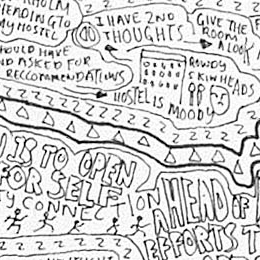 HEADING TO
MY HOSTEL
I HAVE 2ND
THOUGHTS
GIVE THE
ROOM
A LOOK
SHOULD HAVE
ASKED FOR
RECCOMMENDATIONS
ROWDY
SKINHEADS
HOSTEL IS MOODY
Z Z Z Z Z Z Z Z
IS TO OPEN
FOR SELF
CONNEC
AHEAD OF
EFFORTS T
Z Z Z Z Z Z Z